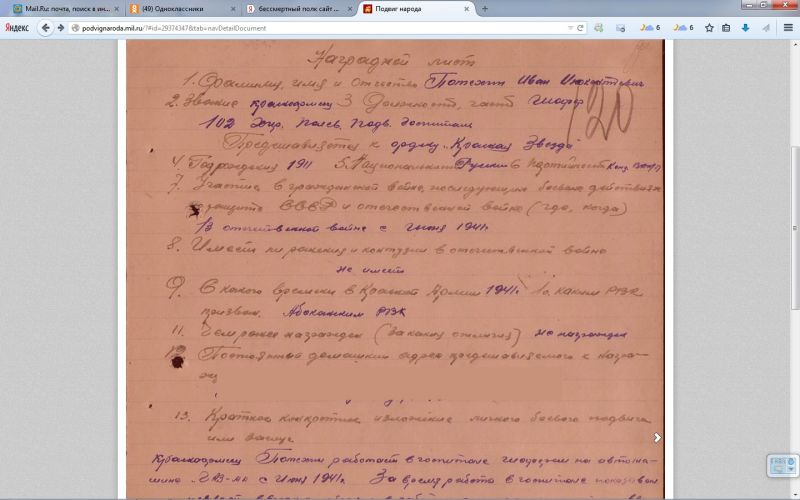 Mail.Ru: почта, поиск в ин...
(49) Одноклассники
бессмертный полк сайт ...
Подвиг народа
Яндекс
podvignaroda.mil.ru/?#id=29374347&tab=navDetailDocument
6
6
Наградной лист
1. Фамилия, имя и отчество Потехин Иван
2. Звание красноармеец 3 Должность, часть шофер
120
102 Хир. Полев. Подв. Госпиталь
Представляется к ордену "Красная Звезда"
4. Год рождения 1911 5. Национальность Русский 6 Партийность Канд. ВКП(б)
7. Участие в гражданской войне, последующих боевых действиях
по защите СССР и отечественной войне (где, когда)
В отечественной войне с июня 1941г.
8. Имеет ли ранения и контузии в отечественной войне
не имеет
9. С какого времени в Красной Армии 1941г. 10. каким РВК
призван. Абаканским РВК
11. Чем ранее награжден (за какие отличия) не награжден
12. Постоянный домашний адрес представляемого к награ-
13. Краткое конкретное изложение личного боевого подвига
или заслуг
Красноармеец Потехин работает в госпитале шофером на автома-
шине с июня 1941г. За время работы в госпитале показал